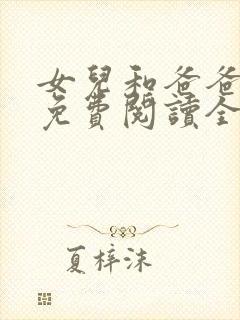 女兒和爸爸
免費閱讀全
夏梓沫